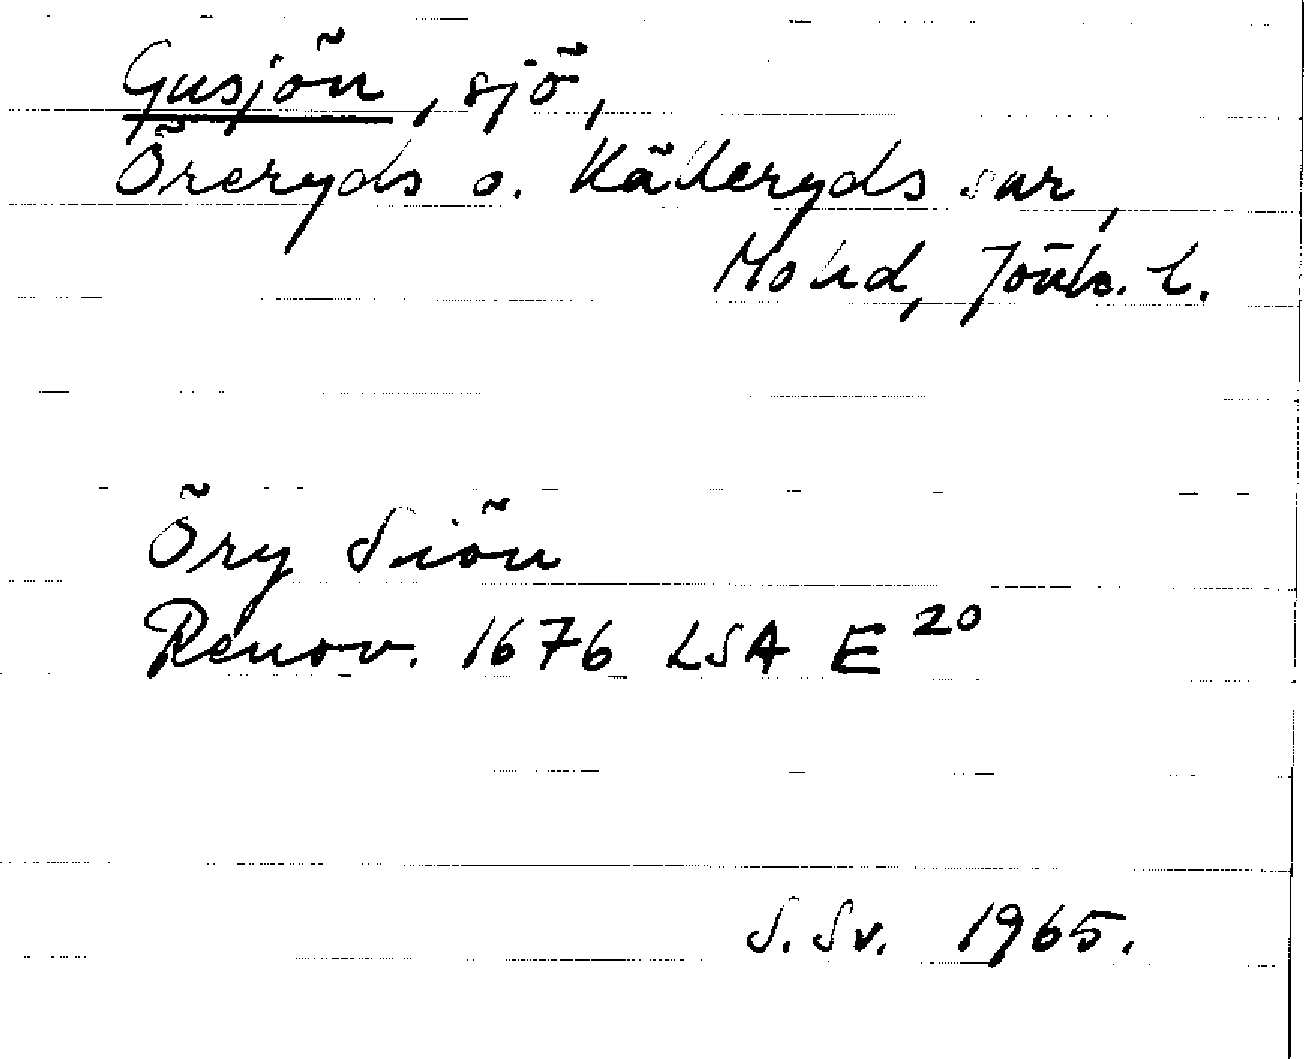 Gusjön, sjö,
Öreryds o. Källeryds snr,
Mo hd, Jönk. l.
Öry Siön
Renov. 1676 LSA E 20
S. Sv. 1965.